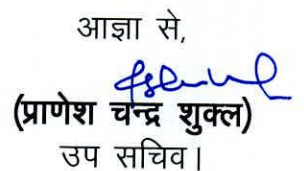 आज्ञा से,
(प्राणेश चन्द्र शुक्ल)
उप सचिव।